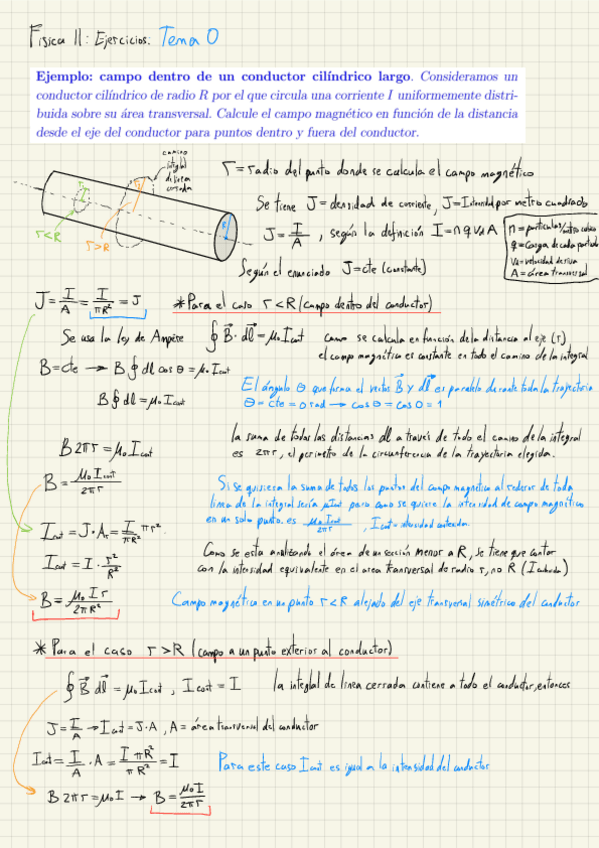 Física II: Ejercicios: Tema 0
Ejemplo: campo dentro de un conductor cilíndrico largo. Consideramos un
conductor cilíndrico de radio R por el que circula una corriente I uniformemente distri-
buida sobre su área transversal. Calcule el campo magnético en función de la distancia
desde el eje del conductor para puntos dentro y fuera del conductor.
camino
integral
de linea
cerrada
r<R
r>R
r = radio del punto donde se calcula el campo magnético
Se tiene J = densidad de corriente, J = Intensidad por metro cuadrado
J = I/A , según la definición I = n q vd A
n = particulas/metro cubico
q = Carga de cada particula
Vd = velocidad deriva
A = área transversal
Según el enunciado J = cte (constante)
J = I/A = I/πR² = J
* Para el caso r < R (campo dentro del conductor)
Se usa la ley de Ampère ∮ B⃗ · dl⃗ = μ₀ I cont
como se calcula en función de la distancia al eje (r),
el campo magnético es constante en todo el camino de la integral
B = cte → B ∮ dl cos θ = μ₀ I cont
El ángulo θ que forma el vector B⃗ y dl⃗ es paralelo durante toda la trayectoria
θ = cte = 0 rad → cos θ = cos 0 = 1
B ∮ dl = μ₀ I cont
la suma de todas las distancias dl a través de todo el camino de la integral
es 2πr, el perímetro de la circunferencia de la trayectoria elegida.
B 2πr = μ₀ I cont
B = μ₀ I cont / 2πr
Si se quisiera la suma de todos los puntos del campo magnético al rededor de toda
linea de la integral sería μ I cont pero como se quiere la intensidad de campo magnético
en un solo punto. es μ₀ I cont / 2πr , I cont = intensidad contenida.
I cont = J · Ar = I/πR² πr²
I cont = I · r²/R²
Como se esta analizando el área de un sección menor a R, se tiene que contar
con la intensidad equivalente en el area transversal de radio r, no R
B = μ₀ I r / 2πR²
Campo magnético en un punto r<R alejado del eje transversal simétrico del conductor
* Para el caso r > R (campo a un punto exterior al conductor)
∮ B⃗ dl⃗ = μ₀ I cont , I cont = I
la integral de linea cerrada contiene a todo el conductor, entonces
J = I/A → I cont = J · A , A = área transversal del conductor
I cont = I/A · A = I πR² / πR² = I
Para este caso I cont es igual a la intensidad del conductor
B 2πr = μ₀ I → B = μ₀ I / 2πr